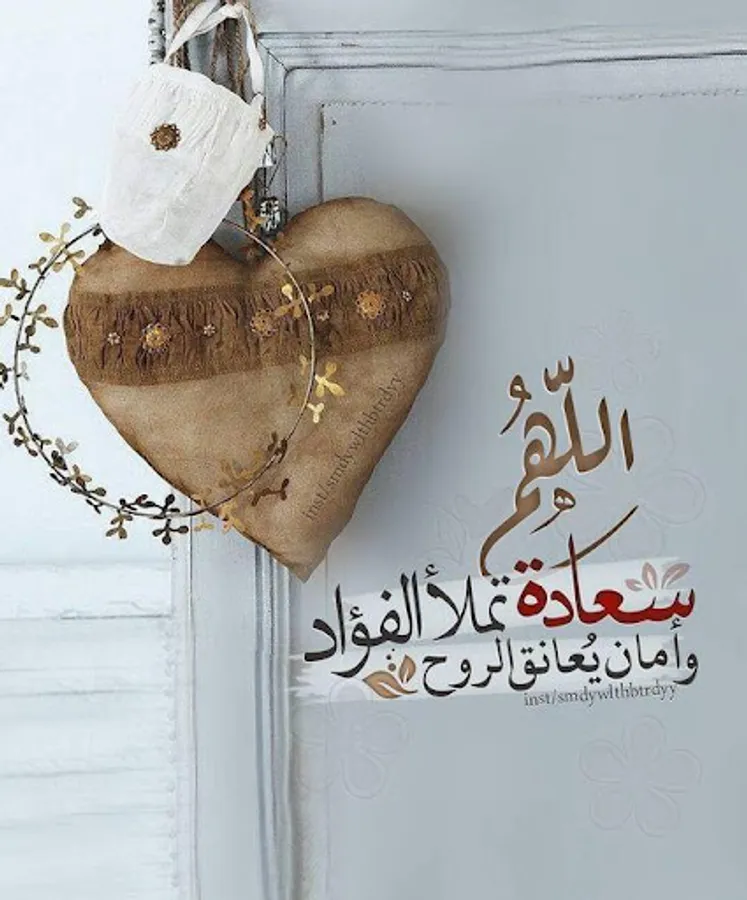 inst/smdywlthbtrdyy
اللّهُم
سعادة تملأ الفؤاد
وأمان يُعانق الروح
inst/smdywlthbtrdyy